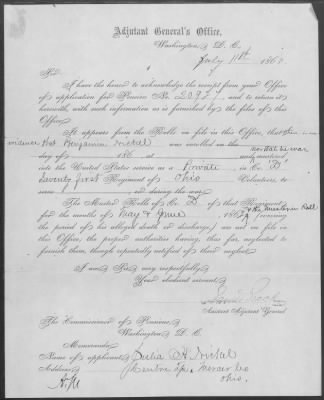 Adjutant General's Office,
Washington, D. C.
July 11th 1863
Sir:
I have the honor to acknowledge the receipt from your Office
of application for Pension No. 20927, and to return it
herewith, with such information as is furnished by the files of this
Office.
It appears from the Rolls on file in this Office, that
evidence that Benjamin Nickel was enrolled on the
day of 186 , at nor that he was mustered
into the United States service as a Private in Co. "D"
Seventy first Regiment of Ohio Volunteers, to
serve , or during the war.
The Muster Rolls of Co. D of that Regiment
for the months of May & June, 1862 & the Muster in Roll
(covering
the period of his alleged death or discharge,) are not on file in
this Office, the proper authorities having, thus far, neglected to
furnish them, though repeatedly notified of their neglect.
I am, Sir, very respectfully,
Your obedient servant,
Assistant Adjutant General
The Commissioner of Pensions,
Washington, D. C.
Memoranda:
Name of applicant, Delia A. Nickel
Address, Centre Tp. Mercer Co
Ohio.